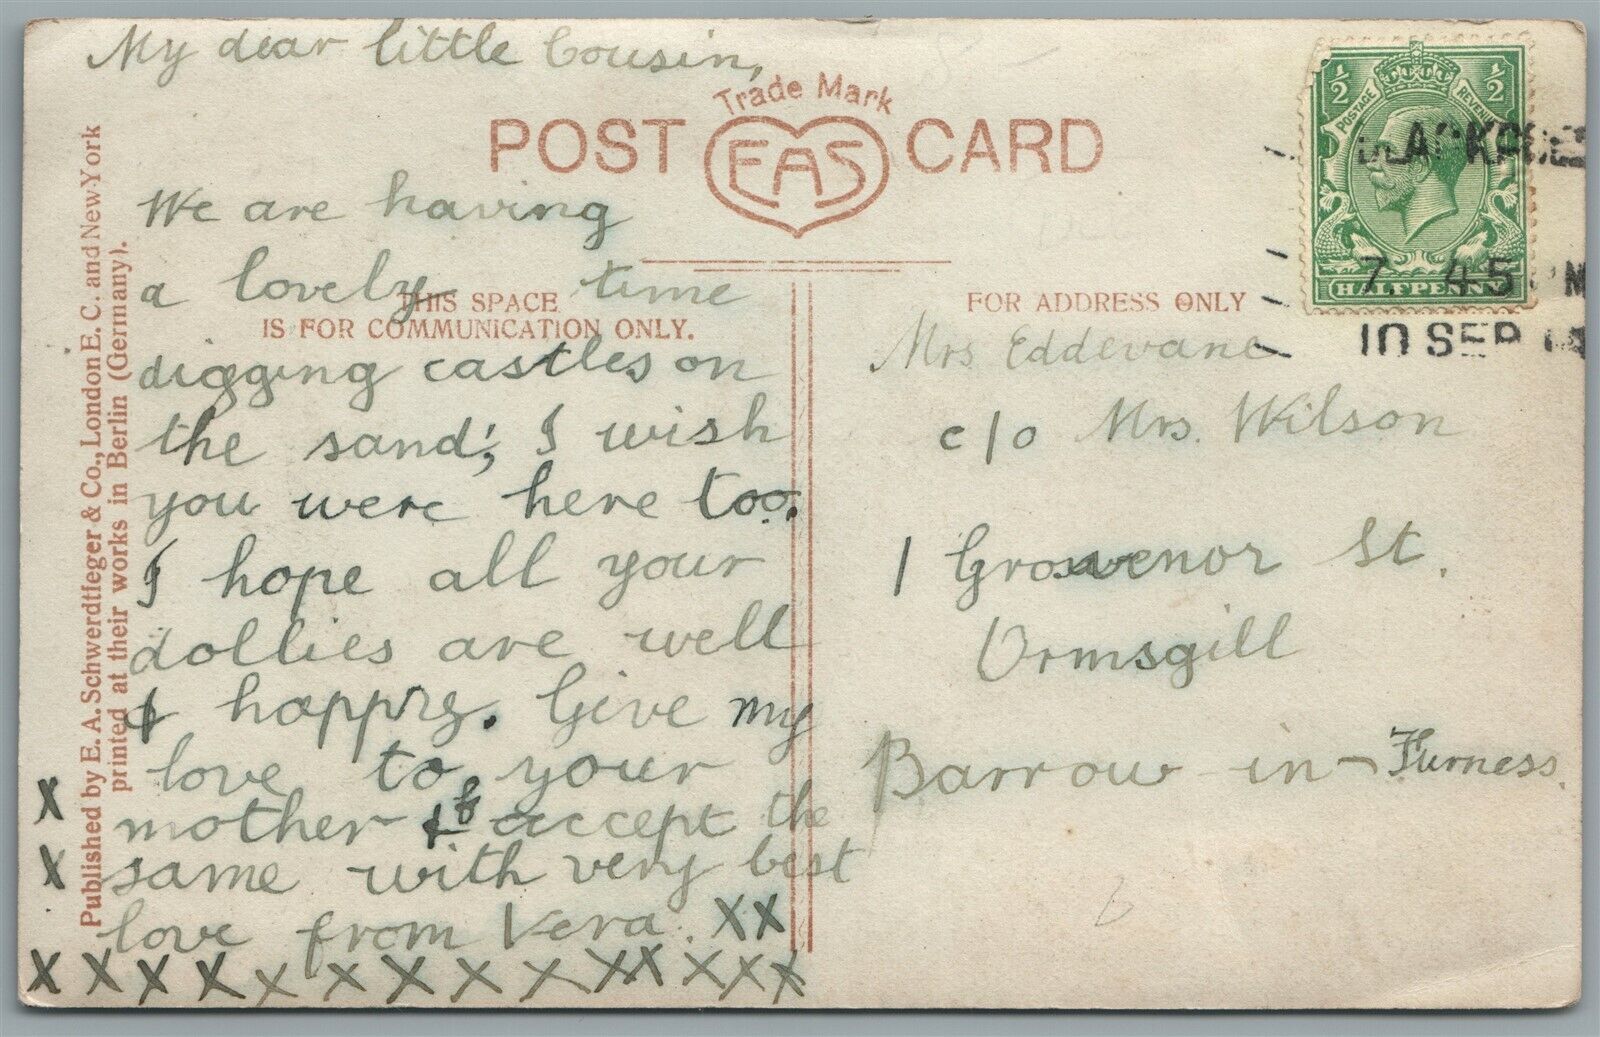 My dear little Cousin,
Trade Mark
POST CARD
EAS
We are having
a lovely time
THIS SPACE
IS FOR COMMUNICATION ONLY.
digging castles on
the sand; I wish
you were here too.
I hope all your
dollies are well
& happy. Give my
love to your
mother & accept the
same with very best
love from Vera. XX
X
X
X X X X X X X X X X X X X X
Published by E. A. Schwerdtfeger & Co., London E. C. and New-York
printed at their works in Berlin (Germany).
½ ½
POSTAGE REVENUE
HALFPENNY
BLACKPOOL
7. 45 PM
10 SEP 14
FOR ADDRESS ONLY
Mrs Eddevane
c/o Mrs. Wilson
1 Grosvenor St.
Ormsgill
Barrow-in-Furness.